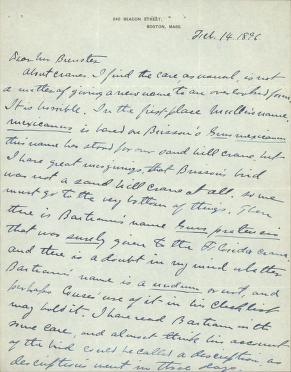 240 BEACON STREET,
BOSTON, MASS.
Feb. 14. 1896
Dear Mr Brewster
About cranes. I find the case, as usual, is not
a matter of giving a new name to an overlooked form.
It is horrible. In the first place Müller's name,
mexicanus is based on Brisson's Grus mexicana
this name has stood for our sand hill crane, but
I have great misgivings, that Brisson's bird
was not a sand hill crane at all. some
must go to the very bottom of things. Then
there is Bartram's name Grus pratensis
that was surely given to the Florida crane,
and there is a doubt in my mind whether
Bartram's name is a nudum or not, and
perhaps Coues use of it in his Checklist
may hold it. I have read Bartram with
some care, and almost think his account
of the bird could be called a description, as
descriptions went in those days.